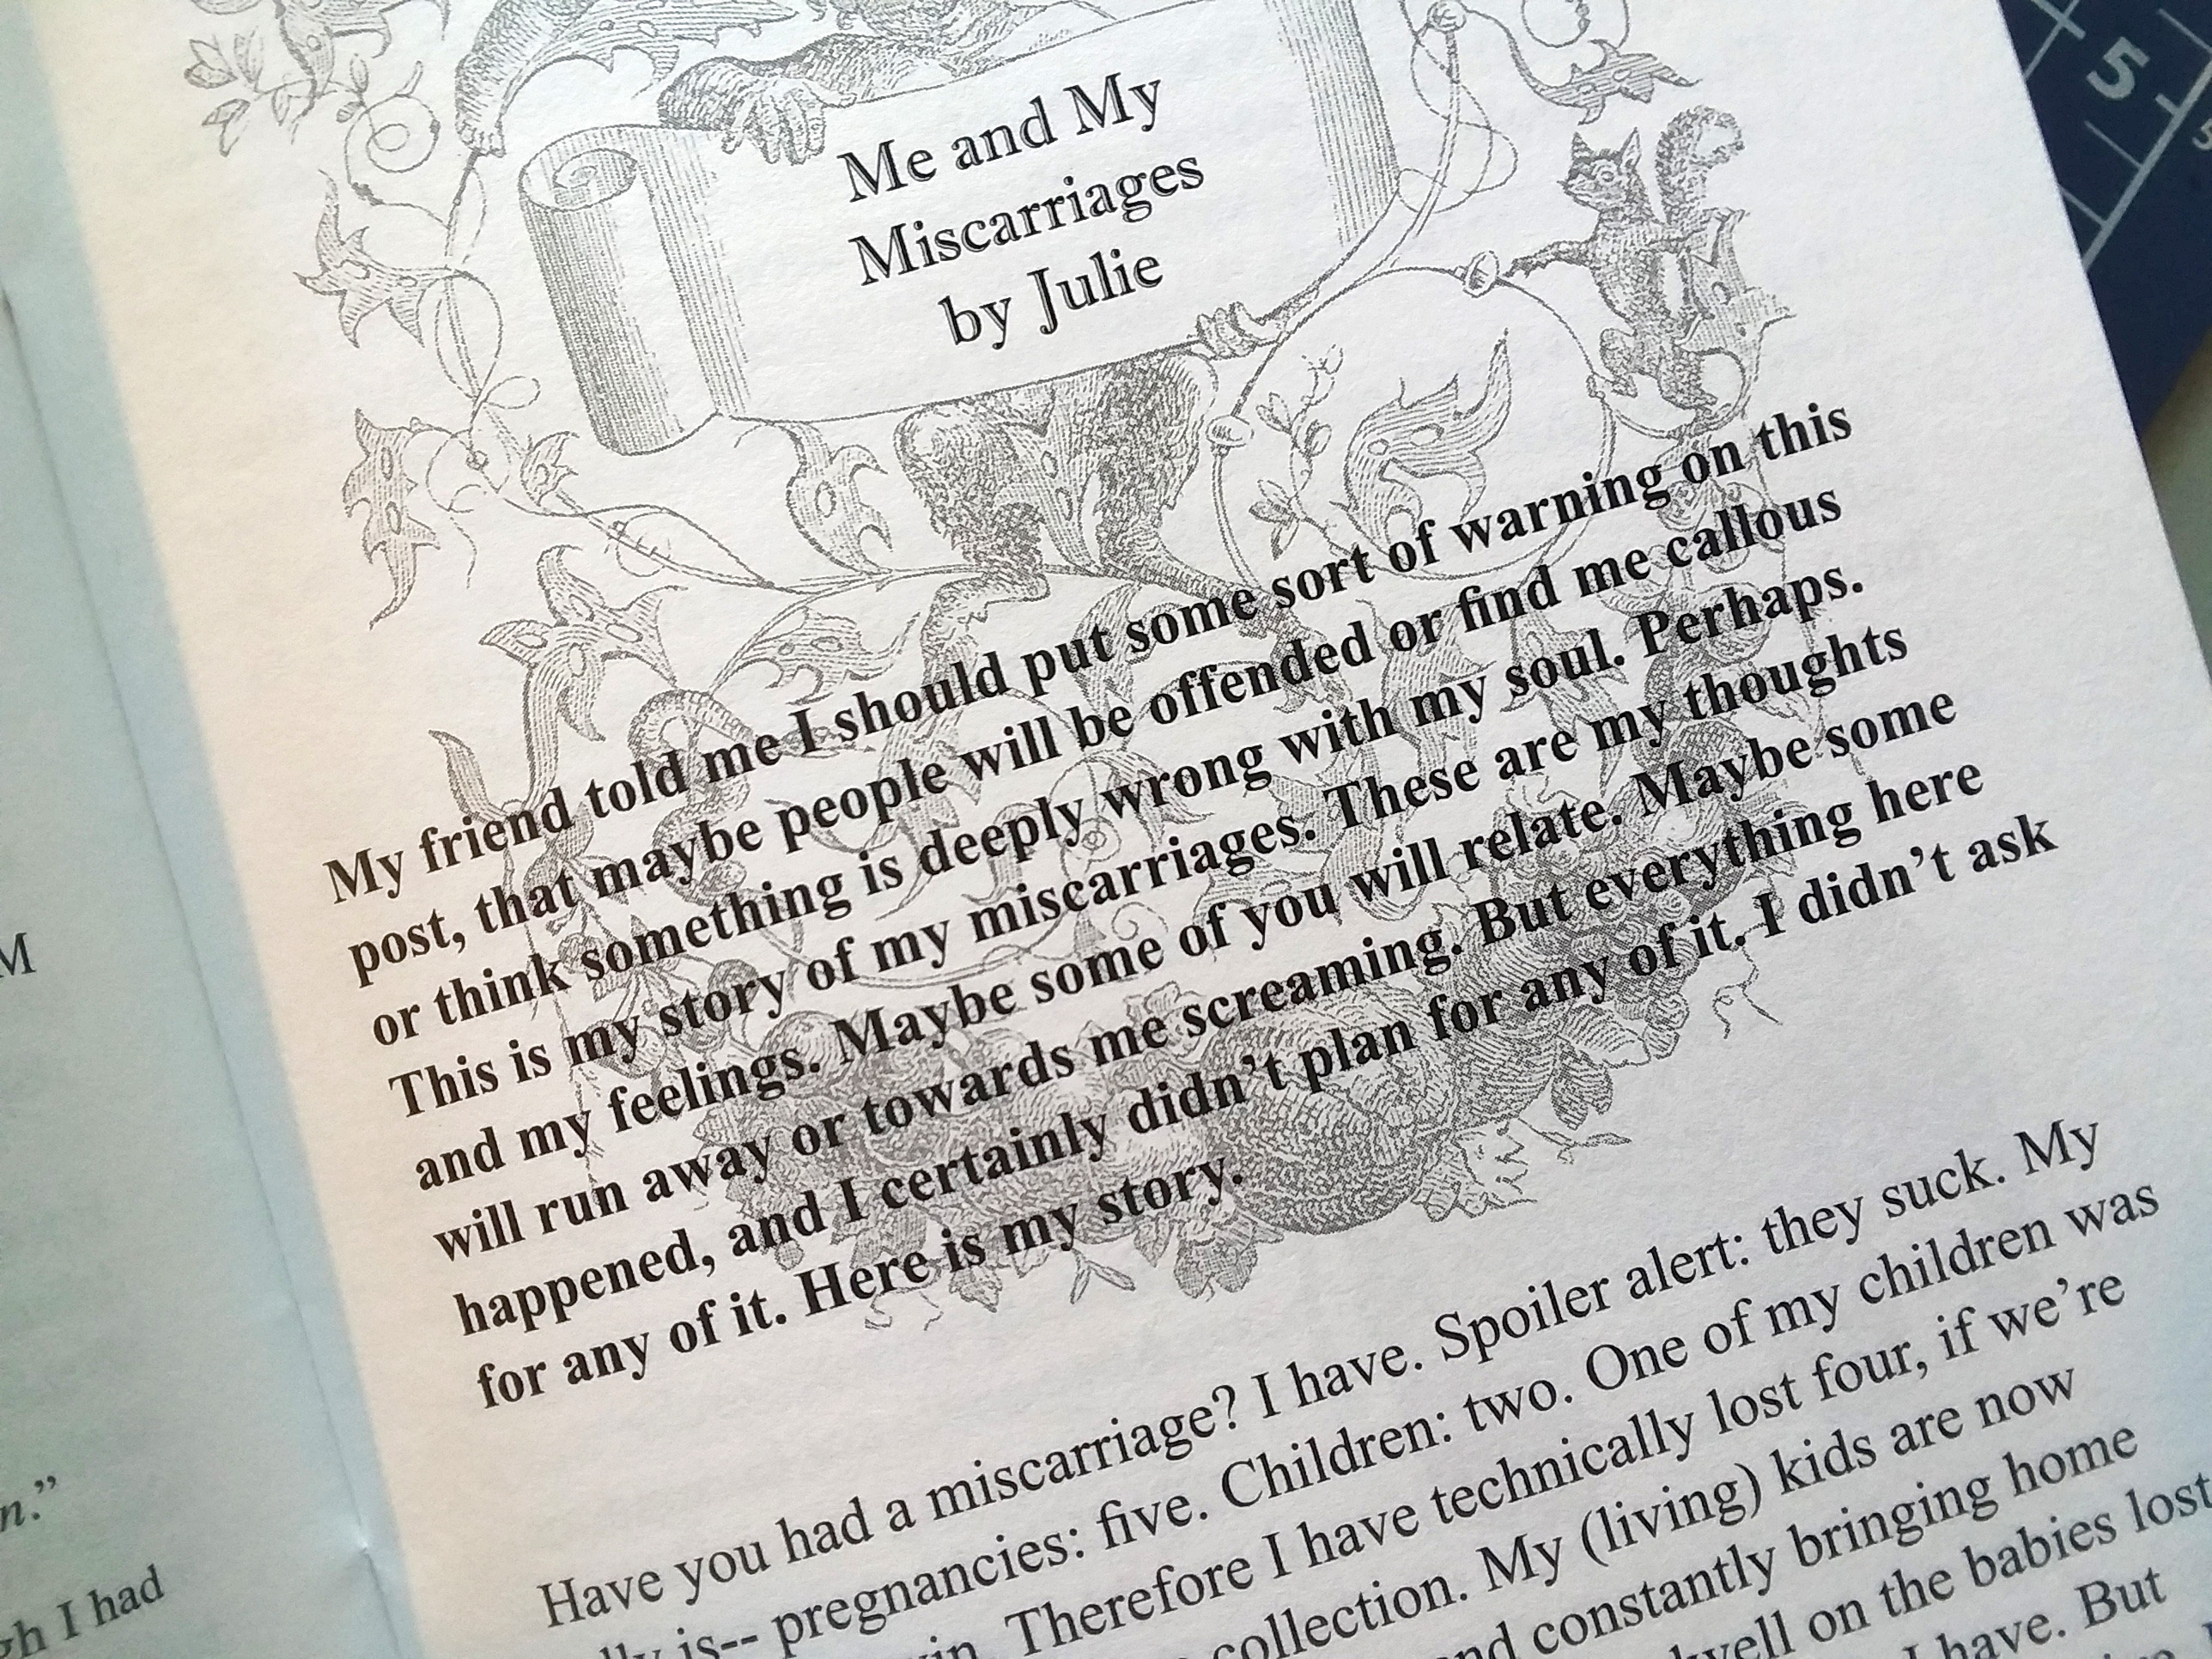 Me and My
Miscarriages
by Julie
My friend told me I should put some sort of warning on this
post, that maybe people will be offended or find me callous
or think something is deeply wrong with my soul. Perhaps.
This is my story of my miscarriages. These are my thoughts
and my feelings. Maybe some of you will relate. Maybe some
will run away or towards me screaming. But everything here
happened, and I certainly didn't plan for any of it. I didn't ask
for any of it. Here is my story.
Have you had a miscarriage? I have. Spoiler alert: they suck. My
is-- pregnancies: five. Children: two. One of my children was
Therefore I have technically lost four, if we're
collection. My (living) kids are now
constantly bringing home
on the babies lost
I have. But
M
n."
I had
5